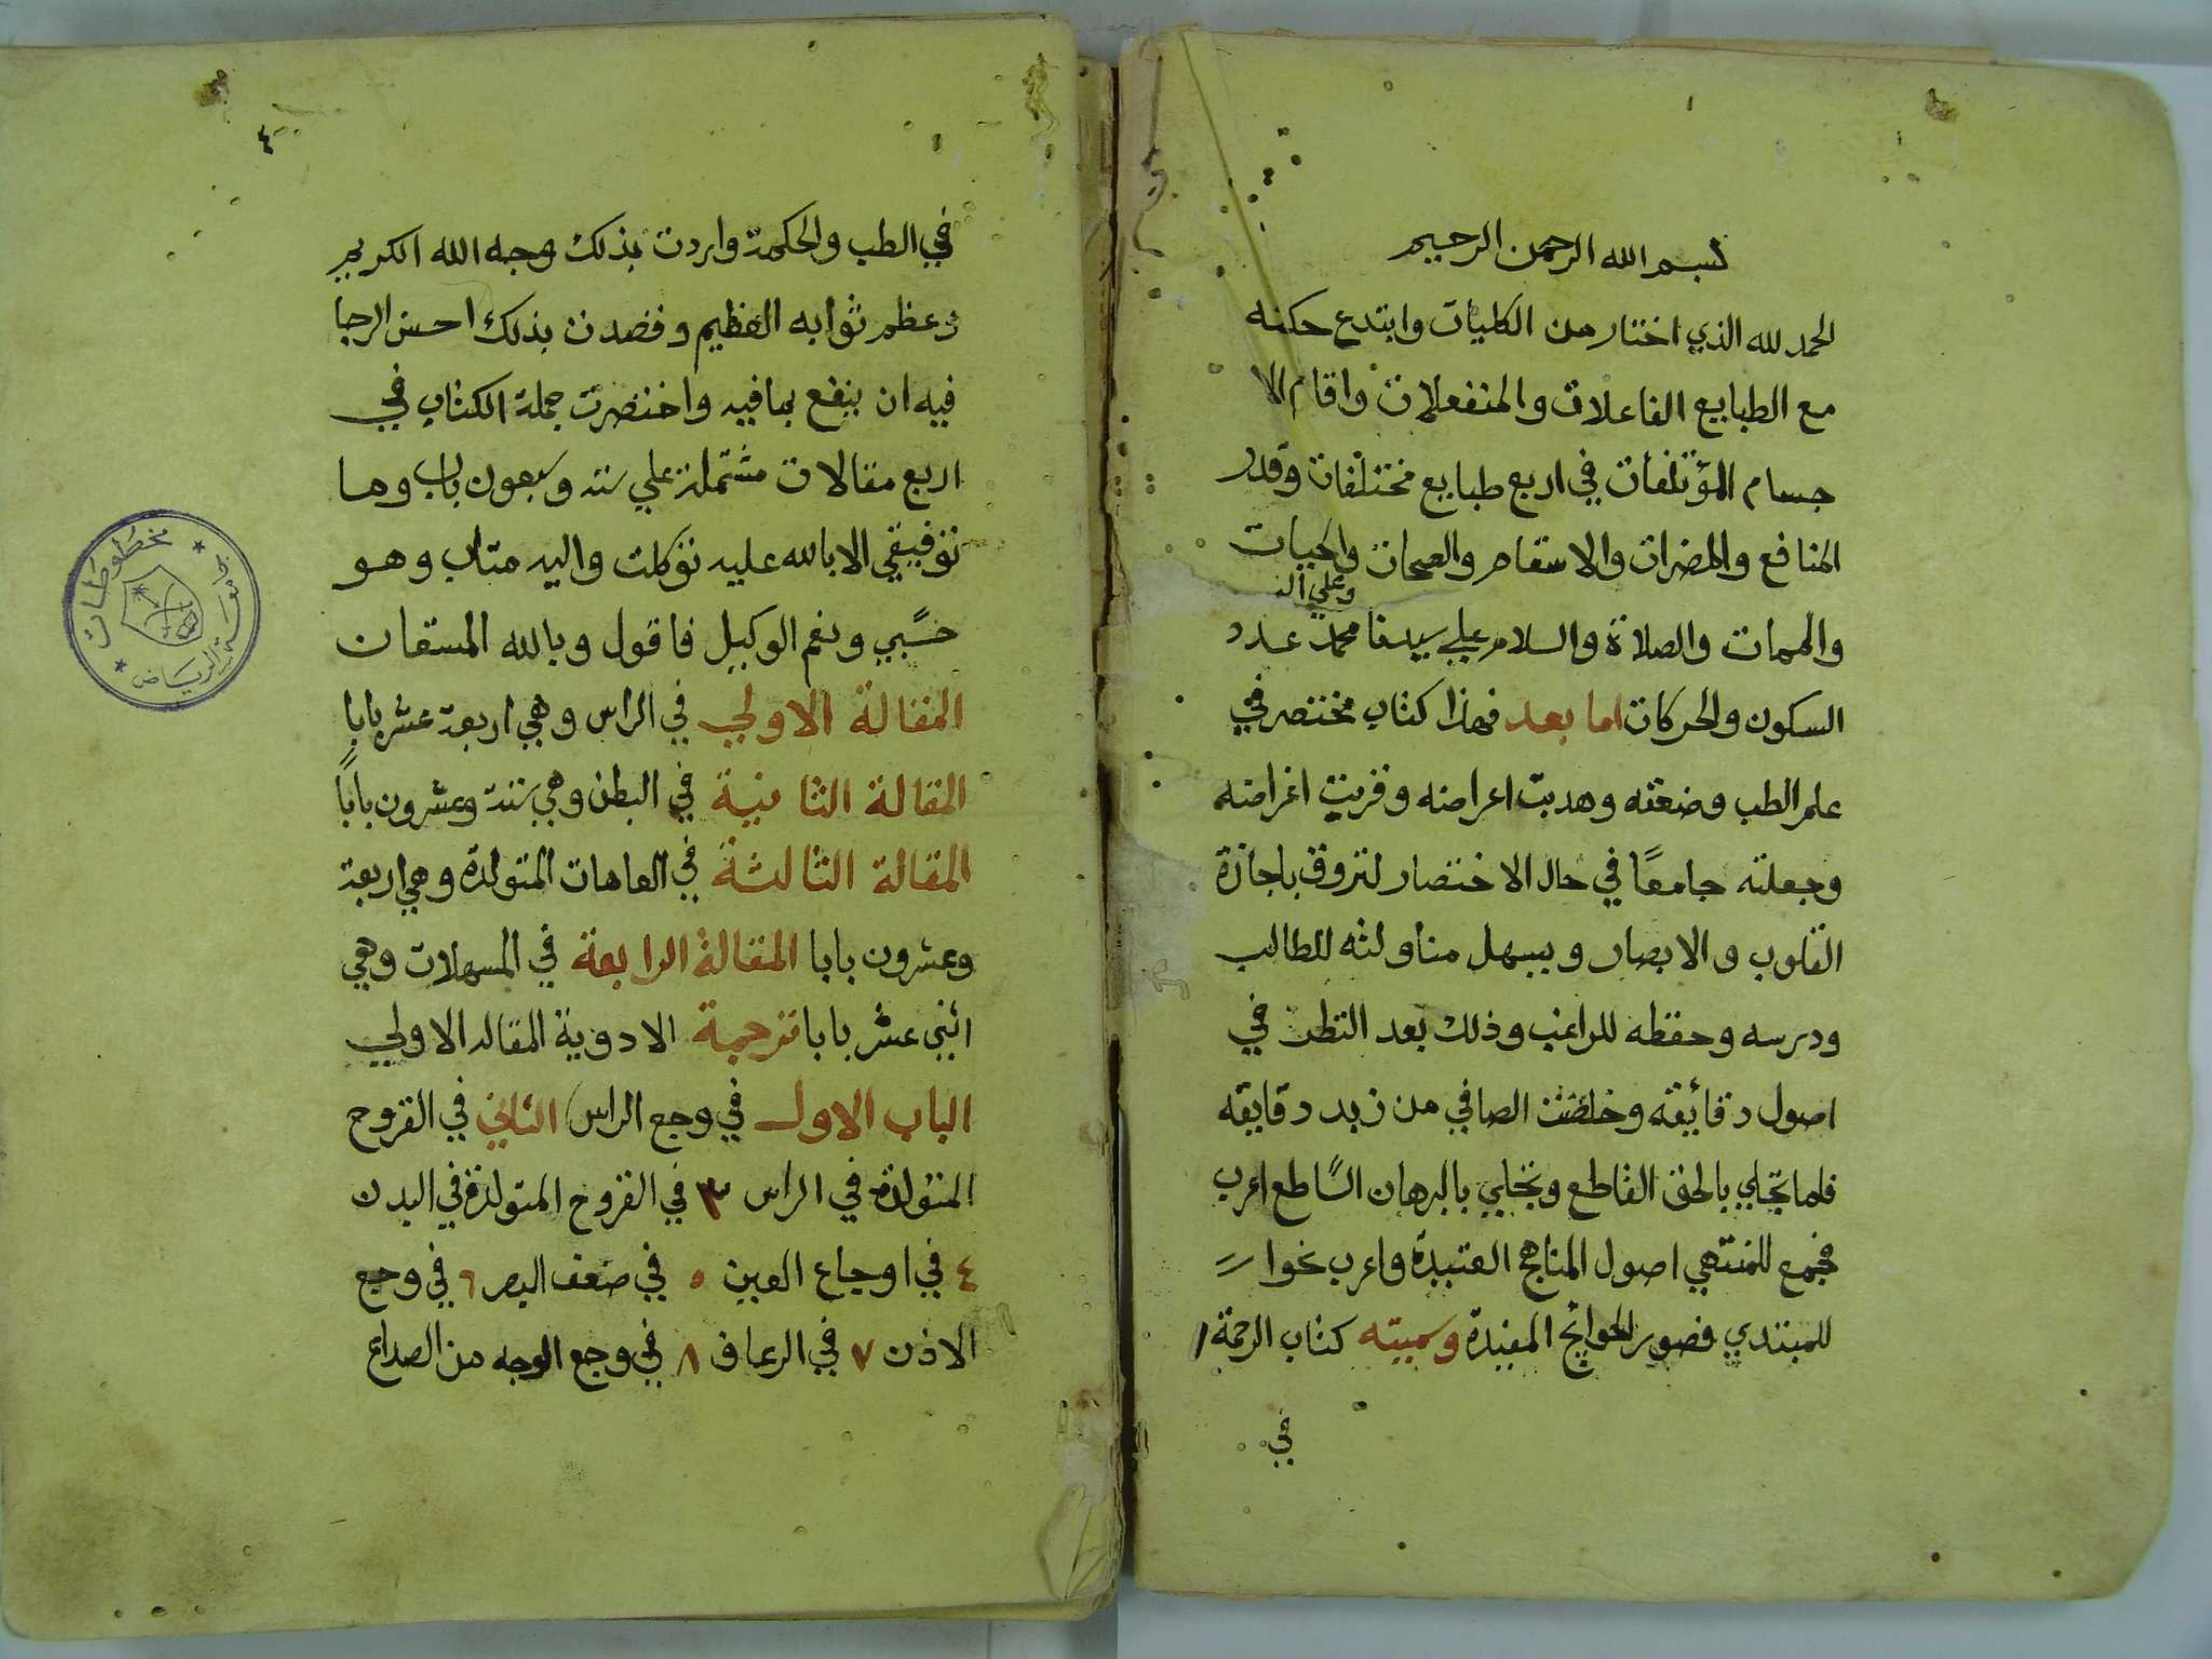 بسم الله الرحمن الرحيم
الحمد لله الذي اختار من الكليات وابتدع حكمه
مع الطبايع الفاعلات والمنفعلات واقام الا
جسام المؤتلفات في اربع طبايع مختلفات وقدر
المنافع والمضرات والاسقام والصحات والحيات
وعلي اله
والممات والصلاة والسلام علي سيدنا محمد عدد
السكون والحركات اما بعد فهذا كتاب مختصر في
علم الطب وضعته وهدبت اعراضه وقربت اغراضه
وجعلته جامعًا في حال الاختصار لتروق باجازة
القلوب والابصار ويسهل مناولته للطالب
ودرسه وحفظه للراغب وذلك بعد النظر في
اصول دقائقه وخلصت الصافي من زبد دقايقه
فلما تجلي بالحق القاطع وتجلي بالبرهان الساطع اعرب
فجمع للمنتهي اصول المناهج العتيدة واعرب نحوا
للمبتدي فصور الحوايج المفيدة وسميته كتاب الرحمة
في
٤
في الطب والحكمة واردت بذلك وجه الله الكريم
وعظم ثوابه العظيم وقصدت بذلك احسن الرجا
فيه ان ينفع بما فيه واختصرت جملة الكتاب في
اربع مقالات مشتملة علي ستة وسبعون باب وما
توفيقي الا بالله عليه توكلت واليه متاب وهو
حسبي ونعم الوكيل فاقول وبالله المستعان
المقالة الاولي في الراس وهي اربعة عشر بابا
المقالة الثانية في البطن وهي ستة وعشرون بابًا
المقالة الثالثة في العاهات المتولدة وهي اربعة
وعشرون بابا المقالة الرابعة في المسهلات وهي
اثني عشر بابا ترجمة الادوية المقاله الاولي
الباب الاول في وجع الراس الثاني في القروح
المتولدة في الراس ٣ في القروح المتولدة في البدن
٤ في اوجاع العين ٥ في ضعف البصر ٦ في وجع
الاذن ٧ في الرعاف ٨ في وجع الوجه من الصداع
جامعة الرياض
مخطوطات